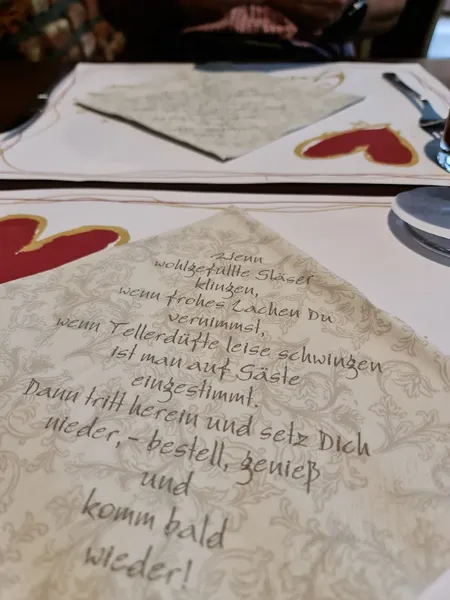 Wenn
wohlgefüllte Gläser
klingen,
wenn frohes Lachen Du
vernimmst,
wenn Tellerdüfte leise schwingen
ist man auf Gäste
eingestimmt.
Dann tritt herein und setz Dich
nieder,- bestell, genieß
und
komm bald
wieder!